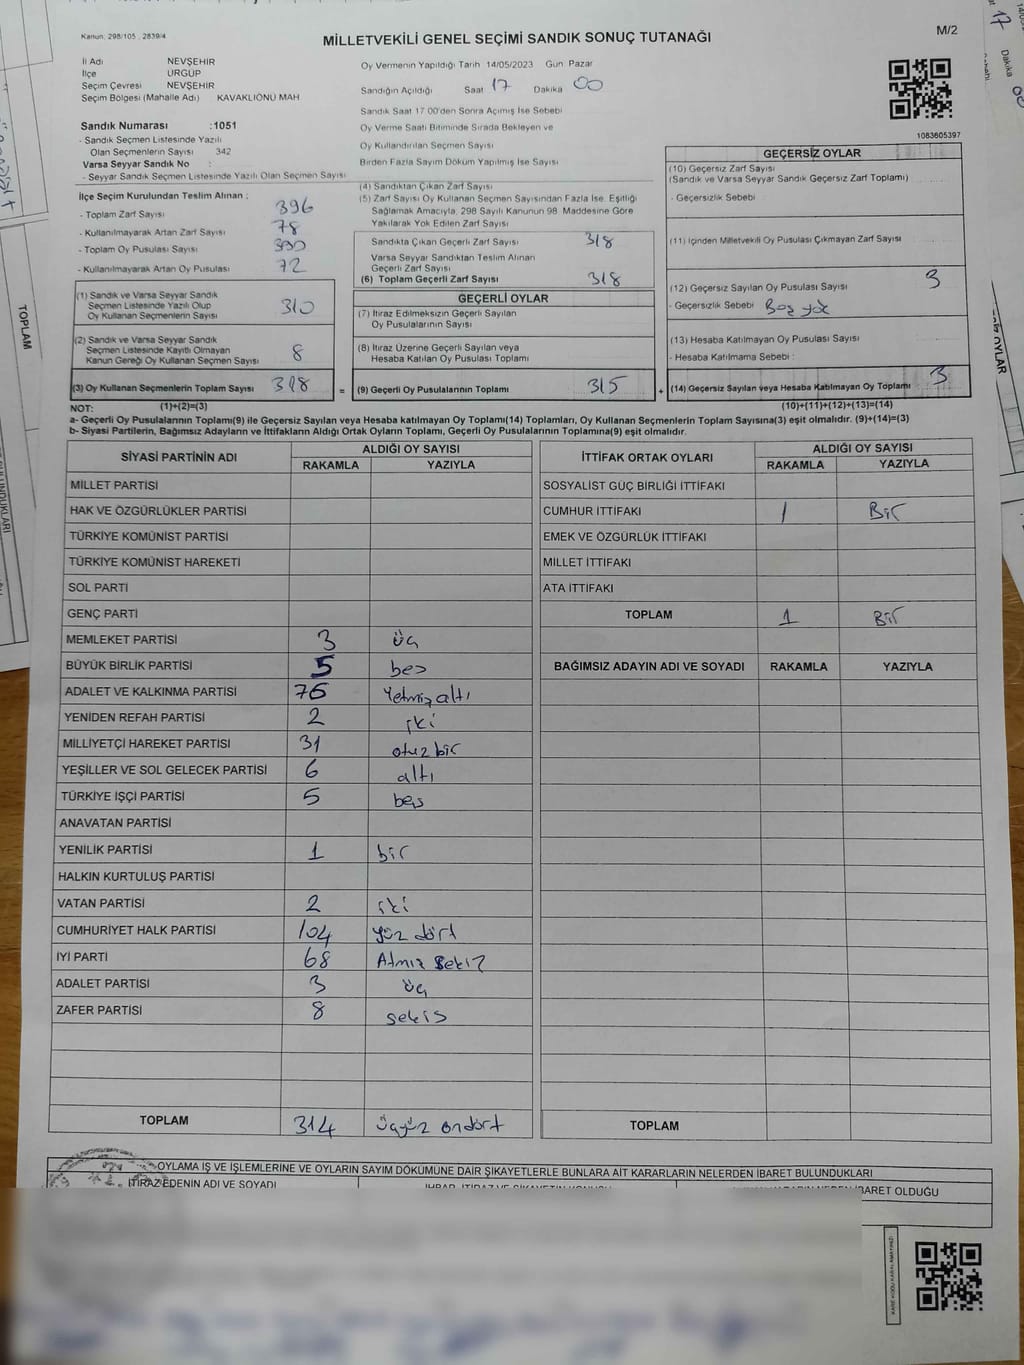 Kanun: 298/105 , 2839/4
MİLLETVEKİLİ GENEL SEÇİMİ SANDIK SONUÇ TUTANAĞI
M/2
İl Adı NEVŞEHİR
İlçe ÜRGÜP
Seçim Çevresi NEVŞEHİR
Seçim Bölgesi (Mahalle Adı) KAVAKLIÖNÜ MAH
Sandık Numarası :1051
- Sandık Seçmen Listesinde Yazılı
Olan Seçmenlerin Sayısı 342
Varsa Seyyar Sandık No :
- Seyyar Sandık Seçmen Listesinde Yazılı Olan Seçmen Sayısı
Oy Vermenin Yapıldığı Tarih 14/05/2023 Gün Pazar
Sandığın Açıldığı Saat 17 Dakika 00
Sandık Saat 17.00'den Sonra Açılmış İse Sebebi
Oy Verme Saati Bitiminde Sırada Bekleyen ve
Oy Kullandırılan Seçmen Sayısı
Birden Fazla Sayım Döküm Yapılmış İse Sayısı
1083605397
İlçe Seçim Kurulundan Teslim Alınan :
- Toplam Zarf Sayısı 396
- Kullanılmayarak Artan Zarf Sayısı 78
- Toplam Oy Pusulası Sayısı 390
- Kullanılmayarak Artan Oy Pusulası 72
(1) Sandık ve Varsa Seyyar Sandık
Seçmen Listesinde Yazılı Olup
Oy Kullanan Seçmenlerin Sayısı 310
(2) Sandık ve Varsa Seyyar Sandık
Seçmen Listesinde Kayıtlı Olmayan
Kanun Gereği Oy Kullanan Seçmen Sayısı 8
(3) Oy Kullanan Seçmenlerin Toplam Sayısı 318 =
(4) Sandıktan Çıkan Zarf Sayısı
(5) Zarf Sayısı Oy Kullanan Seçmen Sayısından Fazla İse, Eşitliği
Sağlamak Amacıyla, 298 Sayılı Kanunun 98. Maddesine Göre
Yakılarak Yok Edilen Zarf Sayısı
Sandıkta Çıkan Geçerli Zarf Sayısı 318
Varsa Seyyar Sandıktan Teslim Alınan
Geçerli Zarf Sayısı
(6) Toplam Geçerli Zarf Sayısı 318
GEÇERLİ OYLAR
(7) İtiraz Edilmeksizin Geçerli Sayılan
Oy Pusulalarının Sayısı
(8) İtiraz Üzerine Geçerli Sayılan veya
Hesaba Katılan Oy Pusulası Toplamı
(9) Geçerli Oy Pusulalarının Toplamı 315 +
GEÇERSİZ OYLAR
(10) Geçersiz Zarf Sayısı
(Sandık ve Varsa Seyyar Sandık Geçersiz Zarf Toplamı)
- Geçersizlik Sebebi
(11) İçinden Milletvekili Oy Pusulası Çıkmayan Zarf Sayısı
(12) Geçersiz Sayılan Oy Pusulası Sayısı 3
- Geçersizlik Sebebi
(13) Hesaba Katılmayan Oy Pusulası Sayısı
- Hesaba Katılmama Sebebi :
(14) Geçersiz Sayılan veya Hesaba Katılmayan Oy Toplamı 3
NOT: (1)+(2)=(3) (10)+(11)+(12)+(13)=(14)
a- Geçerli Oy Pusulalarının Toplamı(9) ile Geçersiz Sayılan veya Hesaba katılmayan Oy Toplamı(14) Toplamları, Oy Kullanan Seçmenlerin Toplam Sayısına(3) eşit olmalıdır. (9)+(14)=(3)
b- Siyasi Partilerin, Bağımsız Adayların ve İttifakların Aldığı Ortak Oyların Toplamı, Geçerli Oy Pusulalarının Toplamına(9) eşit olmalıdır.
SİYASİ PARTİNİN ADI ALDIĞI OY SAYISI
RAKAMLA YAZIYLA
MİLLET PARTİSİ
HAK VE ÖZGÜRLÜKLER PARTİSİ
TÜRKİYE KOMÜNİST PARTİSİ
TÜRKİYE KOMÜNİST HAREKETİ
SOL PARTİ
GENÇ PARTİ
MEMLEKET PARTİSİ 3 üç
BÜYÜK BİRLİK PARTİSİ 5 beş
ADALET VE KALKINMA PARTİSİ 76 Yetmiş altı
YENİDEN REFAH PARTİSİ 2 iki
MİLLİYETÇİ HAREKET PARTİSİ 31 otuz bir
YEŞİLLER VE SOL GELECEK PARTİSİ 6 altı
TÜRKİYE İŞÇİ PARTİSİ 5 beş
ANAVATAN PARTİSİ
YENİLİK PARTİSİ 1 bir
HALKIN KURTULUŞ PARTİSİ
VATAN PARTİSİ 2 iki
CUMHURİYET HALK PARTİSİ 104 yüz dört
İYİ PARTİ 68 Atmış Sekiz
ADALET PARTİSİ 3 üç
ZAFER PARTİSİ 8 sekis
TOPLAM 314 üçyüz ondört
İTTİFAK ORTAK OYLARI ALDIĞI OY SAYISI
RAKAMLA YAZIYLA
SOSYALİST GÜÇ BİRLİĞİ İTTİFAKI
CUMHUR İTTİFAKI 1 Bir
EMEK VE ÖZGÜRLÜK İTTİFAKI
MİLLET İTTİFAKI
ATA İTTİFAKI
TOPLAM 1 Bir
BAĞIMSIZ ADAYIN ADI VE SOYADI RAKAMLA YAZIYLA
TOPLAM
OYLAMA İŞ VE İŞLEMLERİNE VE OYLARIN SAYIM DÖKÜMÜNE DAİR ŞİKAYETLERLE BUNLARA AİT KARARLARIN NELERDEN İBARET BULUNDUKLARI
İTİRAZ EDENİN ADI VE SOYADI
İBARET OLDUĞU
TOPLAM